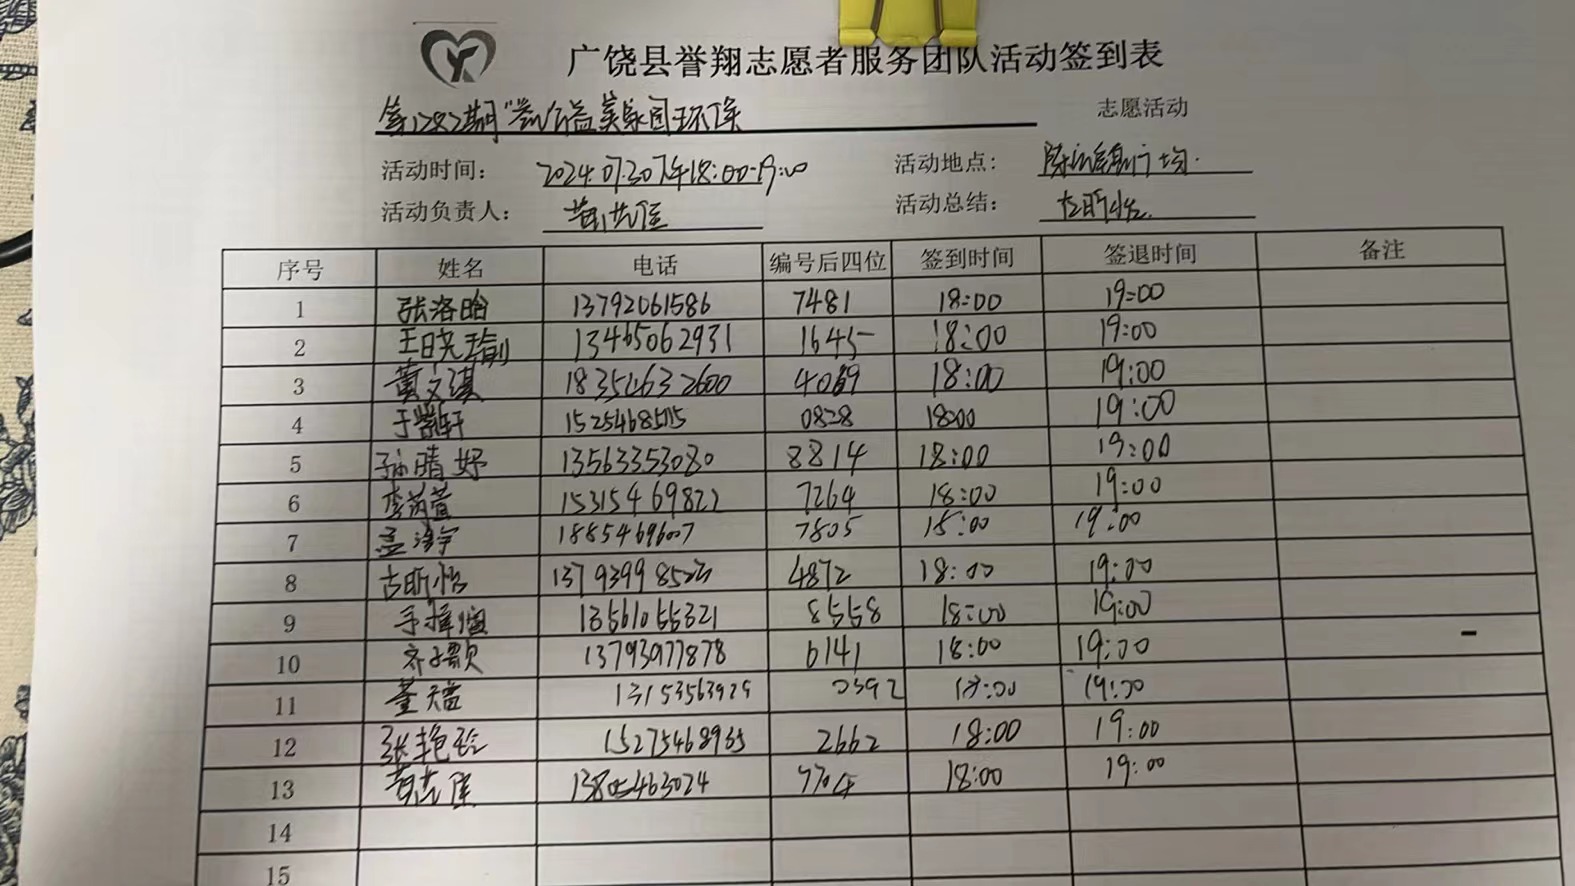 广饶县誉翔志愿者服务团队活动签到表
益美家园环保 志愿活动
活动时间: 2024.07.30下午18:00-19:00 活动地点:
活动负责人: 活动总结: 古昕怡
序号 姓名 电话 编号后四位 签到时间 签退时间 备注
1 张洛晗 13792061586 7481 18:00 19:00
2 王晓瑜 13465062931 1645 18:00 19:00
3 黄文淇 18354632600 4069 18:00 19:00
4 于凯轩 15254685115 0828 18:00 19:00
5 孙晴妤 13563353080 8814 18:00 19:00
6 李芮萱 15315469822 7264 18:00 19:00
7 孟 宇 18854696007 7805 18:00 19:00
8 古昕怡 4872 18:00 19:00
9 13561055321 8558 18:00 19:00
10 齐子歌 13793977878 6141 18:00 19:00
11 董 13153563925 0392 18:00 19:00
12 张艳玲 15275468935 2662 18:00 19:00
13 黄 7704 18:00 19:00
14
15